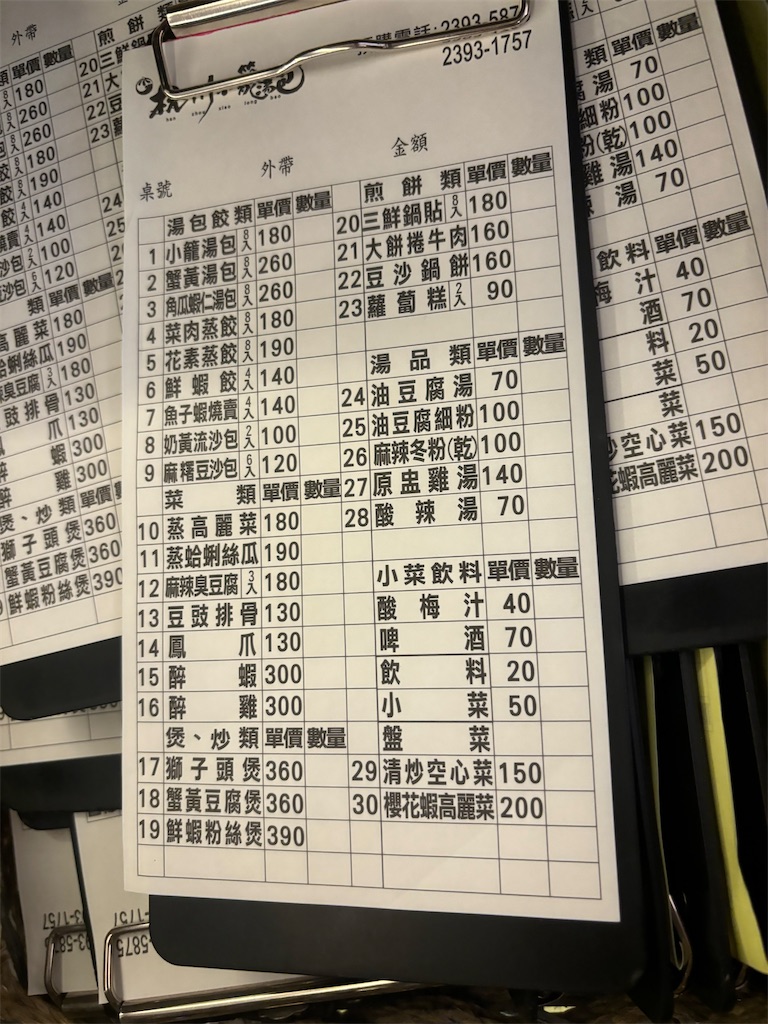 2393-587
2393-1757
杭州小籠湯包
han zhou xiao long bao
桌號 外帶 金額
湯包餃類 單價 數量
1 小籠湯包 8入 180
2 蟹黃湯包 8入 260
3 角瓜蝦仁湯包 8入 260
4 菜肉蒸餃 8入 180
5 花素蒸餃 8入 190
6 鮮蝦餃 4入 140
7 魚子蝦燒賣 4入 140
8 奶黃流沙包 2入 100
9 麻糬豆沙包 6入 120
菜類 單價 數量
10 蒸高麗菜 180
11 蒸蛤蜊絲瓜 190
12 麻辣臭豆腐 3入 180
13 豆豉排骨 130
14 鳳爪 130
15 醉蝦 300
16 醉雞 300
煲、炒類 單價 數量
17 獅子頭煲 360
18 蟹黃豆腐煲 360
19 鮮蝦粉絲煲 390
煎餅類 單價 數量
20 三鮮鍋貼 8入 180
21 大餅捲牛肉 160
22 豆沙鍋餅 160
23 蘿蔔糕 2入 90
湯品類 單價 數量
24 油豆腐湯 70
25 油豆腐細粉 100
26 麻辣冬粉(乾) 100
27 原盅雞湯 140
28 酸辣湯 70
小菜飲料 單價 數量
酸梅汁 40
啤酒 70
飲料 20
小菜 50
盤菜
29 清炒空心菜 150
30 櫻花蝦高麗菜 200